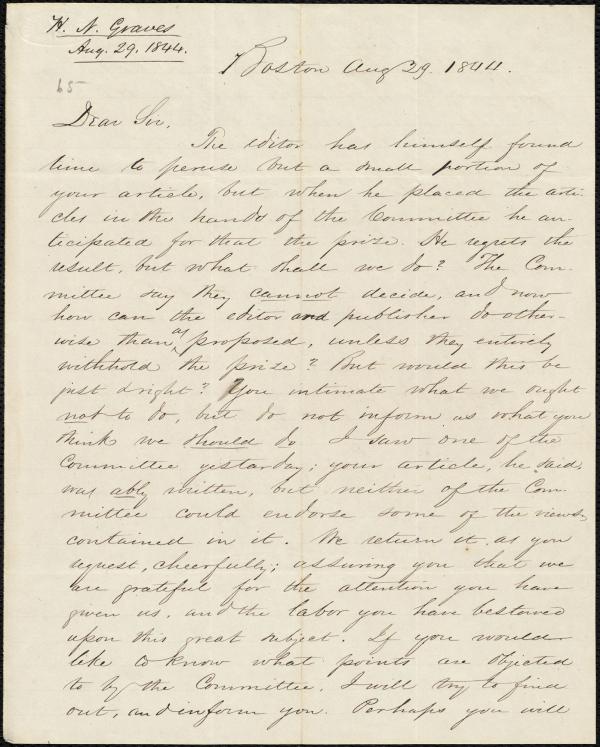 H. N. Graves
Aug. 29. 1844.
65
Boston Aug 29. 1844.
Dear Sir,
The editor has himself found
time to peruse but a small portion of
your article, but when he placed the arti-
cles in the hands of the Committee he an-
ticipated for that the prize. He regrets the
result, but what shall we do? The Com-
mittee say they cannot decide, and now
how can the editor and publisher do other-
wise than as proposed, unless they entirely
withhold the prize? But would this be
just & right? You intimate what we ought
not to do, but do not inform us what you
think we should do I saw one of the
Committee yistarday; your article, he said,
was ably written, but neither of the Com-
mittee could endorse some of the views
contained in it. We return it as you
request, cheerfully; assuring you that we
are grateful for the attention you have
given us, and the labor you have bestowed
upon this great subject. If you would
like to know what points are objected
to by the Committee, I will try to find
out, and inform you. Perhaps you will